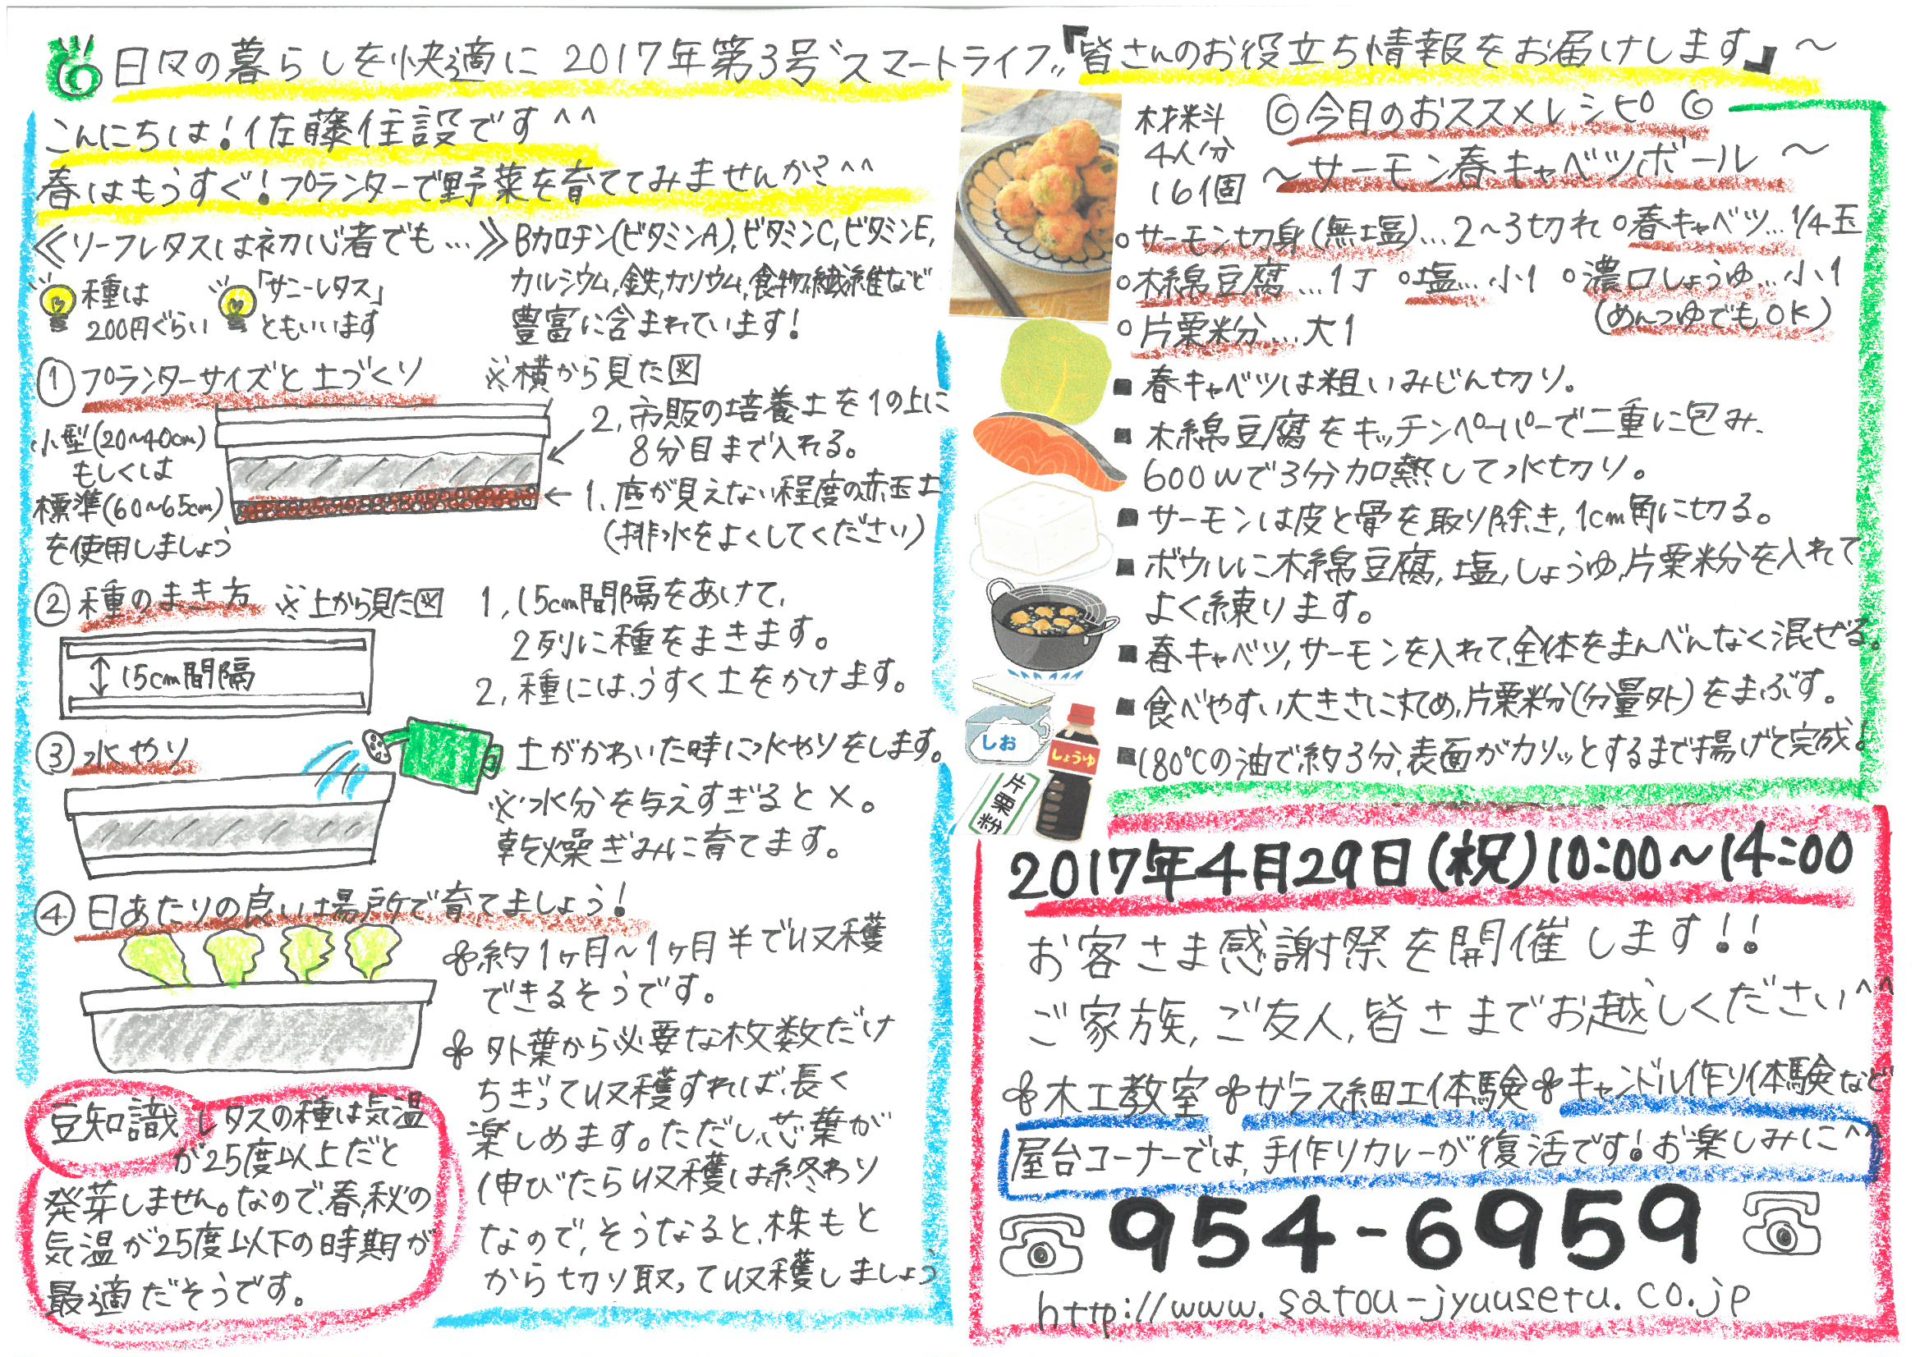 日々の暮らしを快適に 2017年第3号〝スマートライフ〟『皆さんのお役立ち情報をお届けします』～
こんにちは!佐藤住設です^^
春はもうすぐ!プランターで野菜を育ててみませんか?^^
≪リーフレタスは初心者でも…≫
種は
200円ぐらい
「サニーレタス」
ともいいます
Bカロチン(ビタミンA),ビタミンC,ビタミンE,
カルシウム,鉄,カリウム,食物繊維など
豊富に含まれています!
①プランターサイズと土づくり ※横から見た図
小型(20～40cm)
もしくは
標準(60～65cm)
を使用しましょう
2,市販の培養土を1の上に
8分目まで入れる。
1,底が見えない程度の赤玉土
(排水をよくしてください)
②種のまき方 ※上から見た図
15cm間隔
1,15cm間隔をあけて,
2列に種をまきます。
2,種には,うすく土をかけます。
③水やり
土がかわいた時に水やりをします。
※水分を与えすぎると×。
乾燥ぎみに育てます。
④日あたりの良い場所で育てましょう!
約1ヶ月～1ヶ月半で収穫
できるそうです。
外葉から必要な枚数だけ
ちぎって収穫すれば,長く
楽しめます。ただし,芯葉が
伸びたら収穫は終わり
なので,そうなると,株もと
から切り取って収穫しましょう
豆知識 レタスの種は気温
が25度以上だと
発芽しません。なので,春,秋の
気温が25度以下の時期が
最適だそうです。
材料
4人分
16個
◎今月のおススメレシピ◎
～サーモン春キャベツボール～
○サーモン切身(無塩)…2～3切れ ○春キャベツ…1/4玉
○木綿豆腐…1丁 ○塩…小1 ○濃口しょうゆ…小1
(めんつゆでもOK)
○片栗粉分…大1
■春キャベツは粗いみじん切り。
■木綿豆腐をキッチンペーパーで二重に包み、
600wで3分加熱して水切り。
■サーモンは皮と骨を取り除き,1cm角に切る。
■ボウルに木綿豆腐,塩,しょうゆ,片栗粉分を入れて
よく練ります。
■春キャベツ,サーモンを入れて,全体をまんべんなく混ぜる。
■食べやすい大きさに丸め,片栗粉分(分量外)をまぶす。
■180℃の油で,約3分,表面がカリッとするまで揚げて完成!
しお
しょうゆ
片栗粉
2017年4月29日(祝)10:00～14:00
お客さま感謝祭を開催します!!
ご家族,ご友人,皆さまでお越しください^^
木工教室 ガラス細工体験 キャンドル作り体験など
屋台コーナーでは,手作りカレーが復活です!お楽しみに^^
954-6959
http://www.satou-jyuusetu.co.jp